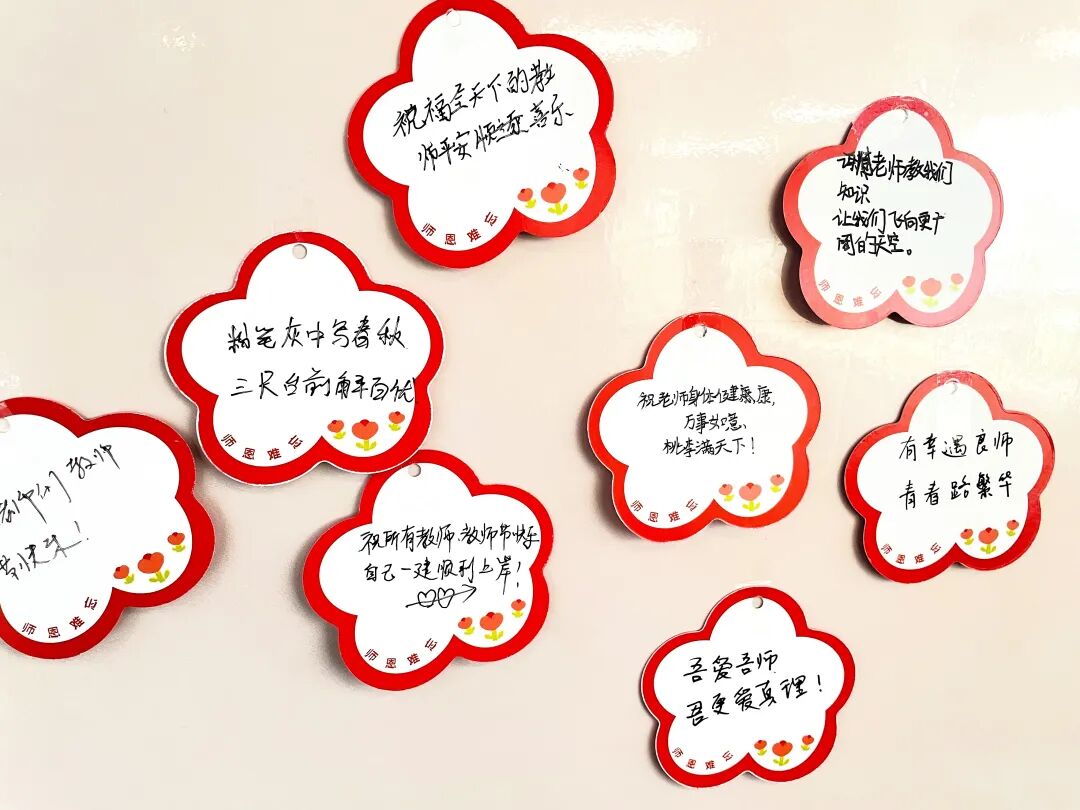 祝福全天下的教
师平安顺遂喜乐
师恩难忘
谢谢老师教我们
知识
让我们飞向更广
阔的天空。
师恩难忘
粉笔灰中写春秋
三尺台前解百忧
师恩难忘
祝老师身体健康,
万事如意,
桃李满天下！
师恩难忘
有幸遇良师
青春路繁华
师恩难忘
老师们教师
节快乐！
师恩难忘
祝所有教师.教师节快乐
自己一建顺利上岸！
师恩难忘
吾爱吾师
吾更爱真理！
师恩难忘